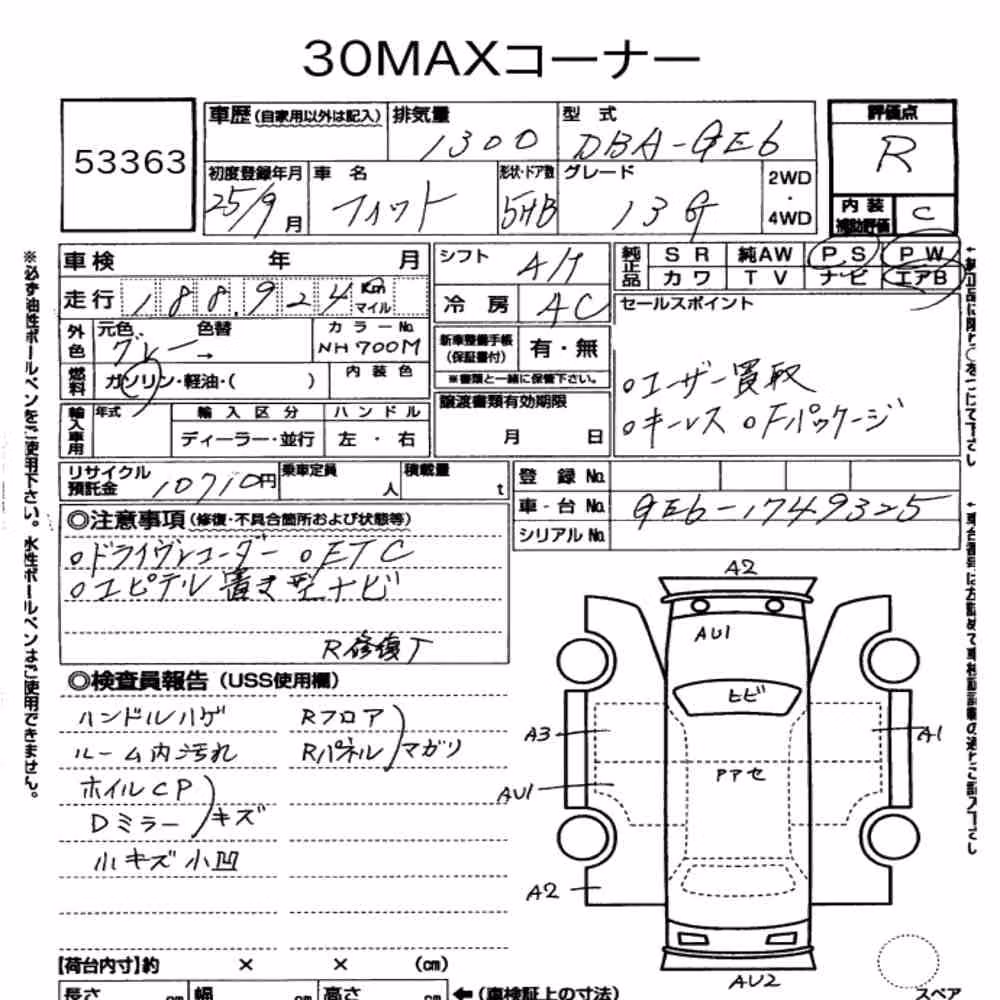 30MAXコーナー
53363
車歴 (自家用以外は記入) 排気量 型式 評価点
1300 DBA-GE6 R
初度登録年月 車名 形状・ドア数 グレード 2WD・4WD 内装補助評価 C
25/9月 フィット 5HB 13G
車検 年 月 シフト A/T 純正品 SR 純AW PS PW
カワ TV ナビ エアB
走行 188,924 Km マイル 冷房 AC セールスポイント
外色 元色 色替 カラーNo. 新車整備手帳(保証書付) 有・無
グレー → NH700M ※書類と一緒に保管下さい。
燃料 ガソリン・軽油・( ) 内装色 譲渡書類有効期限
月 日
○ユーザー買取
○キーレス ○Fパッケージ
輸入車用 年式 輸入区分 ハンドル
ディーラー・並行 左・右
リサイクル預託金 10710円 乗車定員 人 積載量 t 登録No.
車台No. GE6-1749325
シリアルNo.
◎注意事項 (修復・不具合箇所および状態等)
○ドライヴレコーダー ○ETC
○ユピテル置き型ナビ
R修復了
◎検査員報告 (USS使用欄)
ハンドルハゲ Rフロア
ルーム内汚れ Rパネル マガリ
ホイルCP
Dミラー キズ
小キズ小凹
A2
AU1
ヒビ
A3 A1
Pアセ
AU1
A2
AU2
スペア
【荷台内寸】約 × × (cm)
長さ cm 幅 cm 高さ cm ←(車検証上の寸法)
※必ず油性ボールペンをご使用下さい。水性ボールペンはご使用できません。
←純正品に限り○をつけて下さい